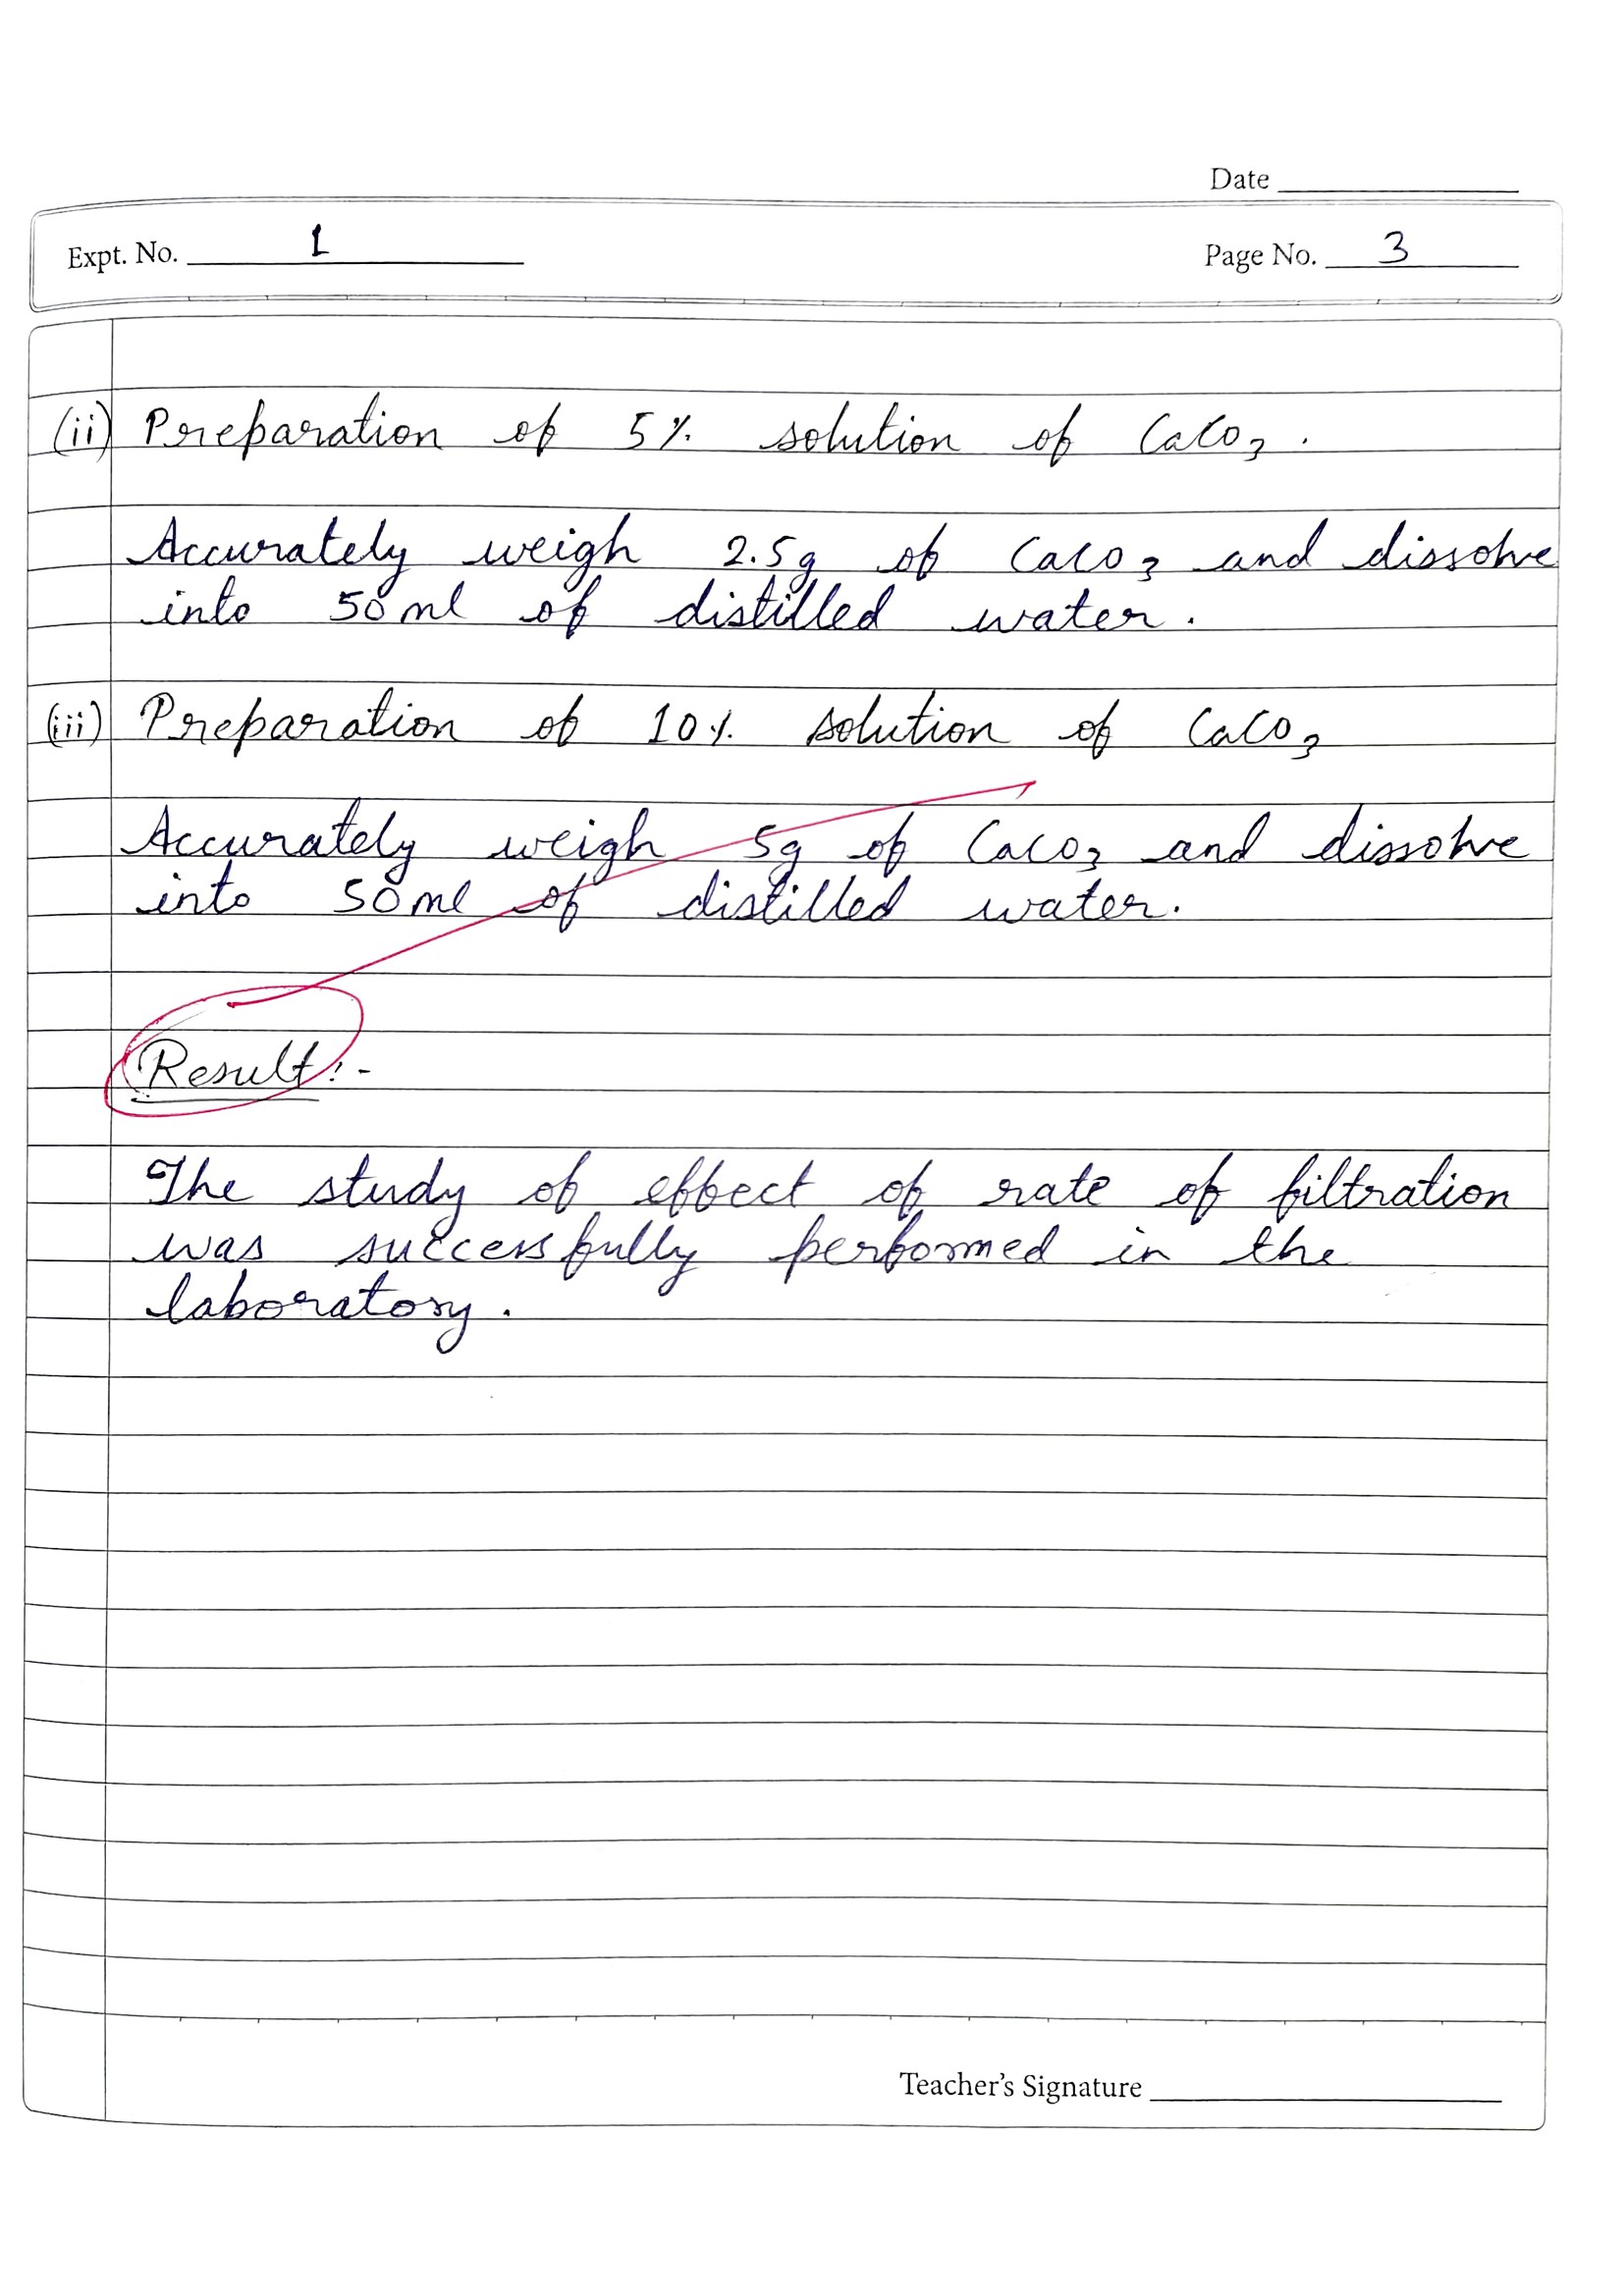 Date
Expt. No. 1
Page No. 3
(ii) Preparation of 5% solution of CaCO3.
Accurately weigh 2.5g of CaCO3 and dissolve
into 50ml of distilled water.
(iii) Preparation of 10% solution of CaCO3
Accurately weigh 5g of CaCO3 and dissolve
into 50ml of distilled water.
Result:-
The study of effect of rate of filtration
was successfully performed in the
laboratory.
Teacher's Signature